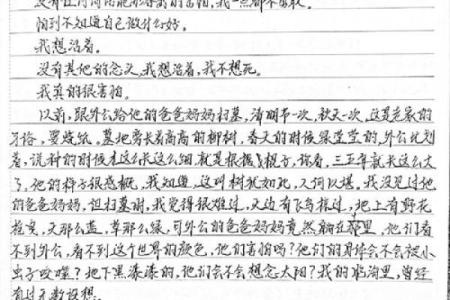 没有任何词语能形容我的害怕，我一点都不勇敢。
怕到不知道自己做什么好。
我想活着。
没有其他的念头，我想活着，我不想死。
我真的很害怕。
以前，跟外公给他的爸爸妈妈扫墓，清明节一次，秋天一次，这是老家的
习俗，要烧纸。墓地旁长着高高的柳树，春天的时候绿莹莹的，外公比划
着，说种的时候才这么长这么细，就是根棍子，你看，三五年就长这么大
了，他的样子很感慨，我知道，这叫树犹如此，人何以堪。我没见过他
的爸爸妈妈，但扫墓时，我觉得很难过，天边有飞鸟掠过，地上有野花
摇曳，天那么蓝，草那么绿，可外公的爸爸妈妈竟然躺在那里，他们看
不到外公，看不到这个世界的颜色，他们害怕吗？他们的身体会不会被小
虫子咬噬？地下黑漆漆的，他们会不会想念太阳？我的脑海里，曾经
有过无数设想。